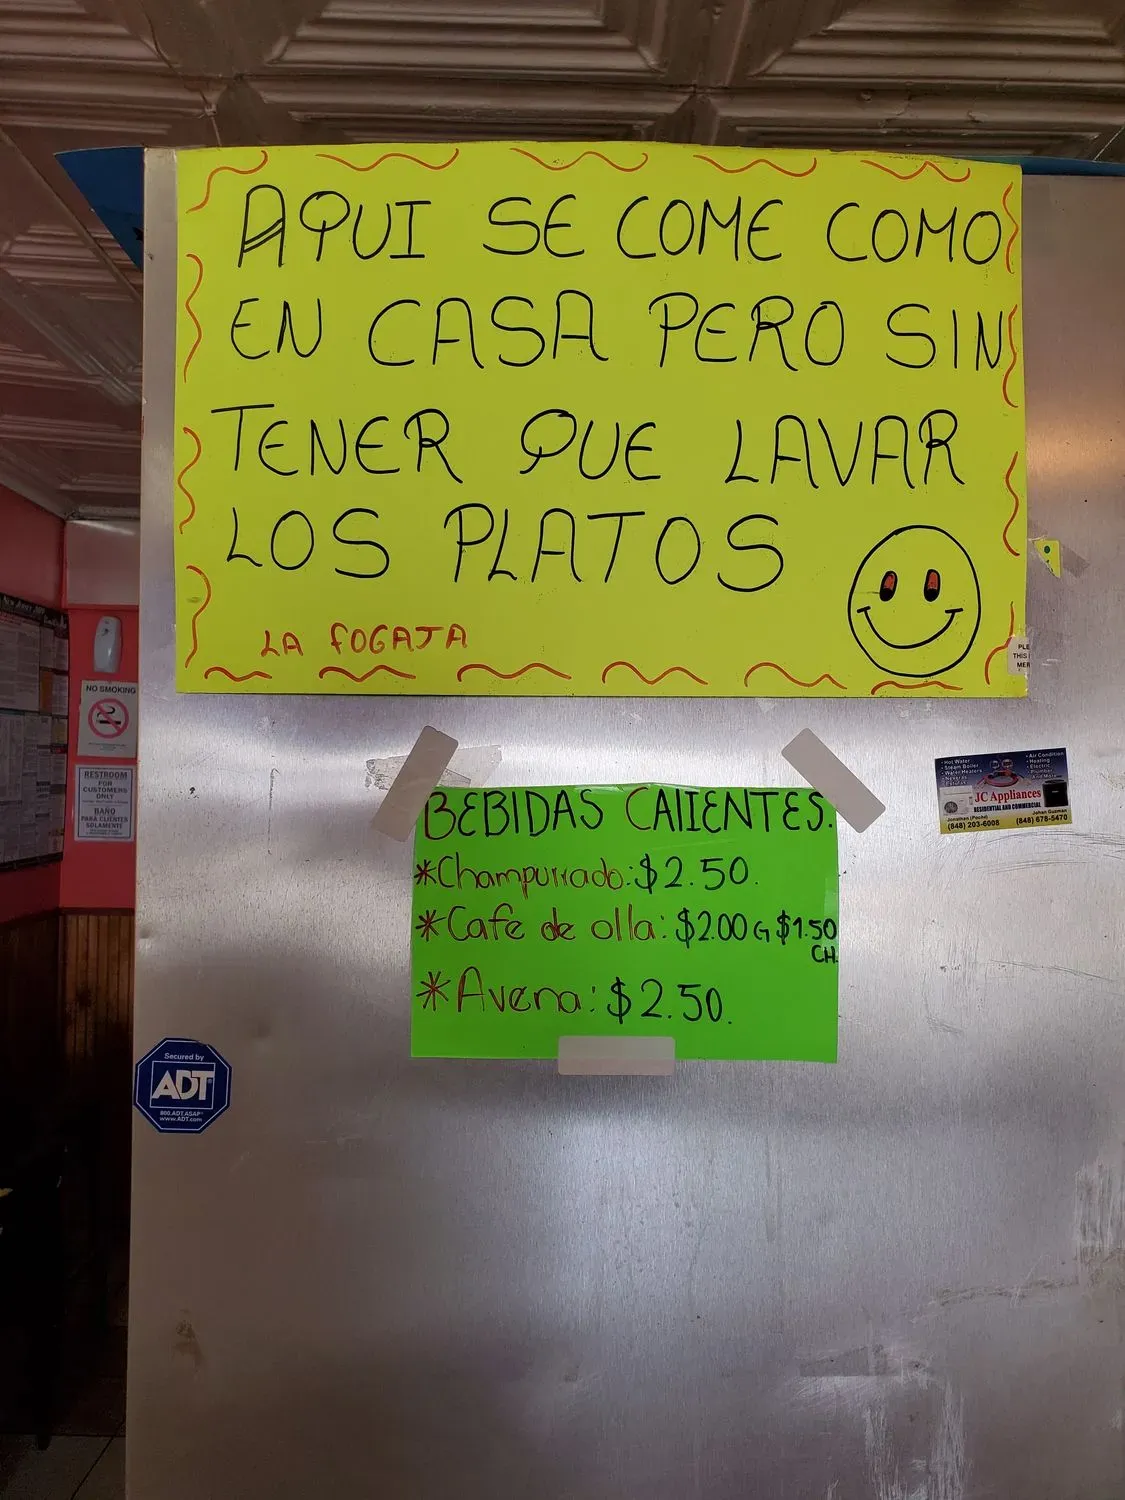 AQUI SE COME COMO
EN CASA PERO SIN
TENER QUE LAVAR
LOS PLATOS
LA FOGATA
BEBIDAS CALIENTES.
*Champurrado: $2.50.
*Cafe de olla: $2.00 G $1.50
CH.
*Avena: $2.50.
NO SMOKING
RESTROOM
FOR
CUSTOMERS
ONLY
BAÑO
PARA CLIENTES
SOLAMENTE
Secured by
ADT
800.ADT.ASAP
www.ADT.com
• Hot Water
• Steam Boiler
• Water Heaters
• Air Condition
• Heating
• Electric
JC Appliances
RESIDENTIAL AND COMMERCIAL
Jonathan (Poche)
(848) 203-6008
Johan Guzman
(848) 678-5470
PLE
THIS
MER